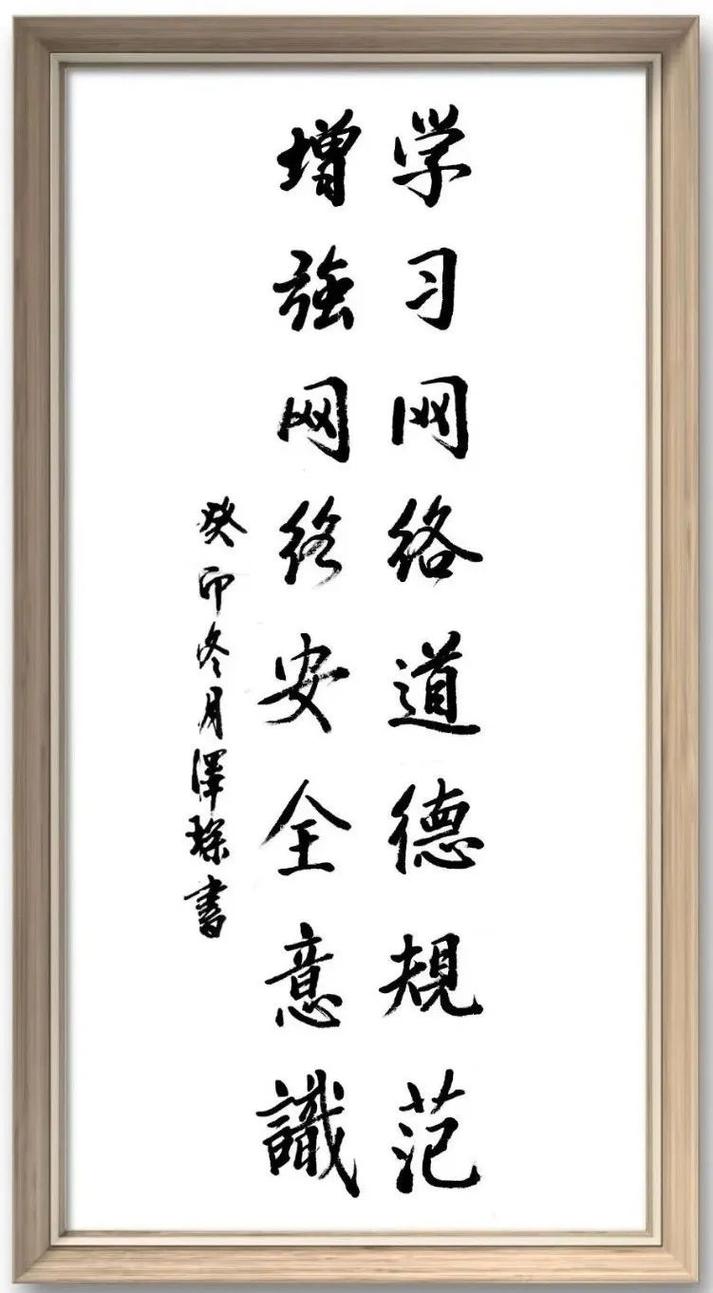 学习网络道德规范
增強网络安全意識
癸卯冬月澤琛書